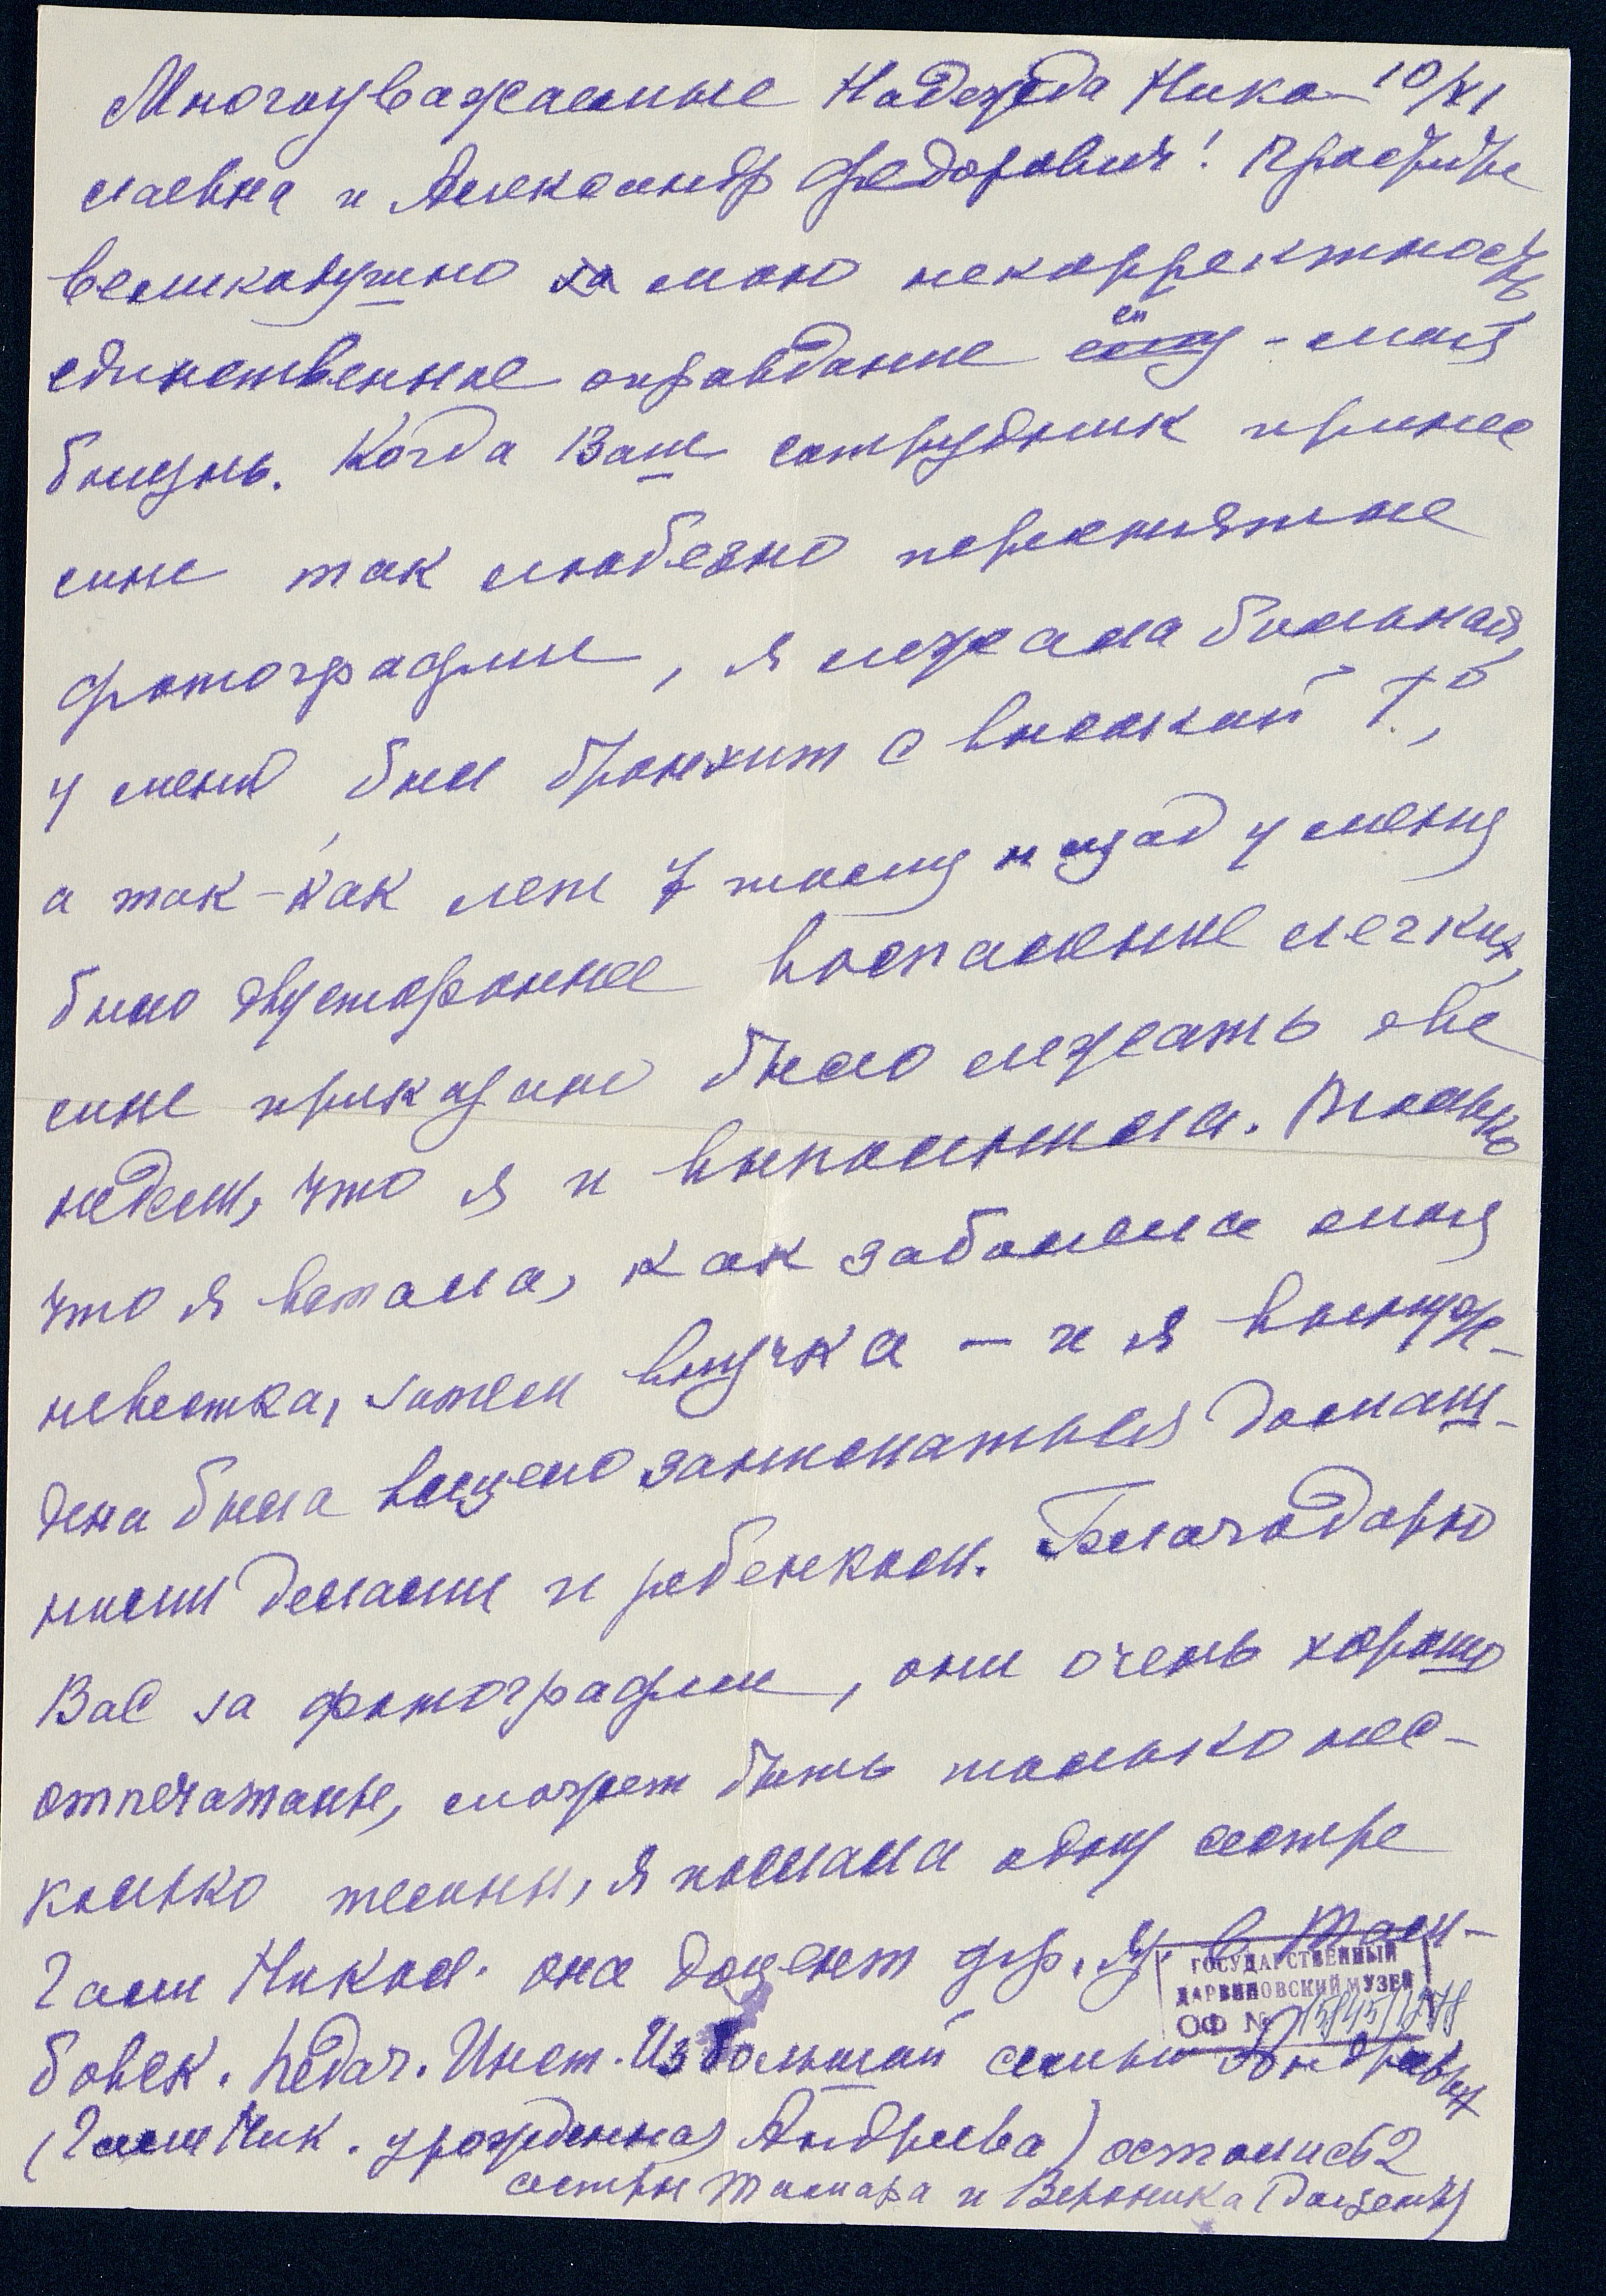 10/XI
Многоуважаемые Надежда Нико-
лаевна и Александр Федорович! Простите
великодушно за мою некорректность
единственное оправдание ей - моя
болезнь. Когда Ваш сотрудник принес
мне так любезно переснятые
фотографии, я лежала больная,
у меня был бронхит с высокой t°,
а так-как лет 7 тому назад у меня
было двустороннее воспаление легких,
мне приказано было лежать две
недели, что я и выполнила. Только
что я встала, как заболела моя
невестка, затем внучка – и я вынуж-
дена была всецело заниматься домаш-
ними делами и ребенком. Благодарю
Вас за фотографии, они очень хорошо
отпечатаны, может быть только нес-
колько темны, я послала одну сестре
Гали Никол. она доцент в Там-
бовск. Педаг. Инст. Из большой семьи Андреевых
(Гали Ник. урожденная Андреева) остались 2
сестры Тамара и Вероника (доценты)
ГОСУДАРСТВЕННЫЙ
ДАРВИНОВСКИЙ МУЗЕЙ
ОФ №